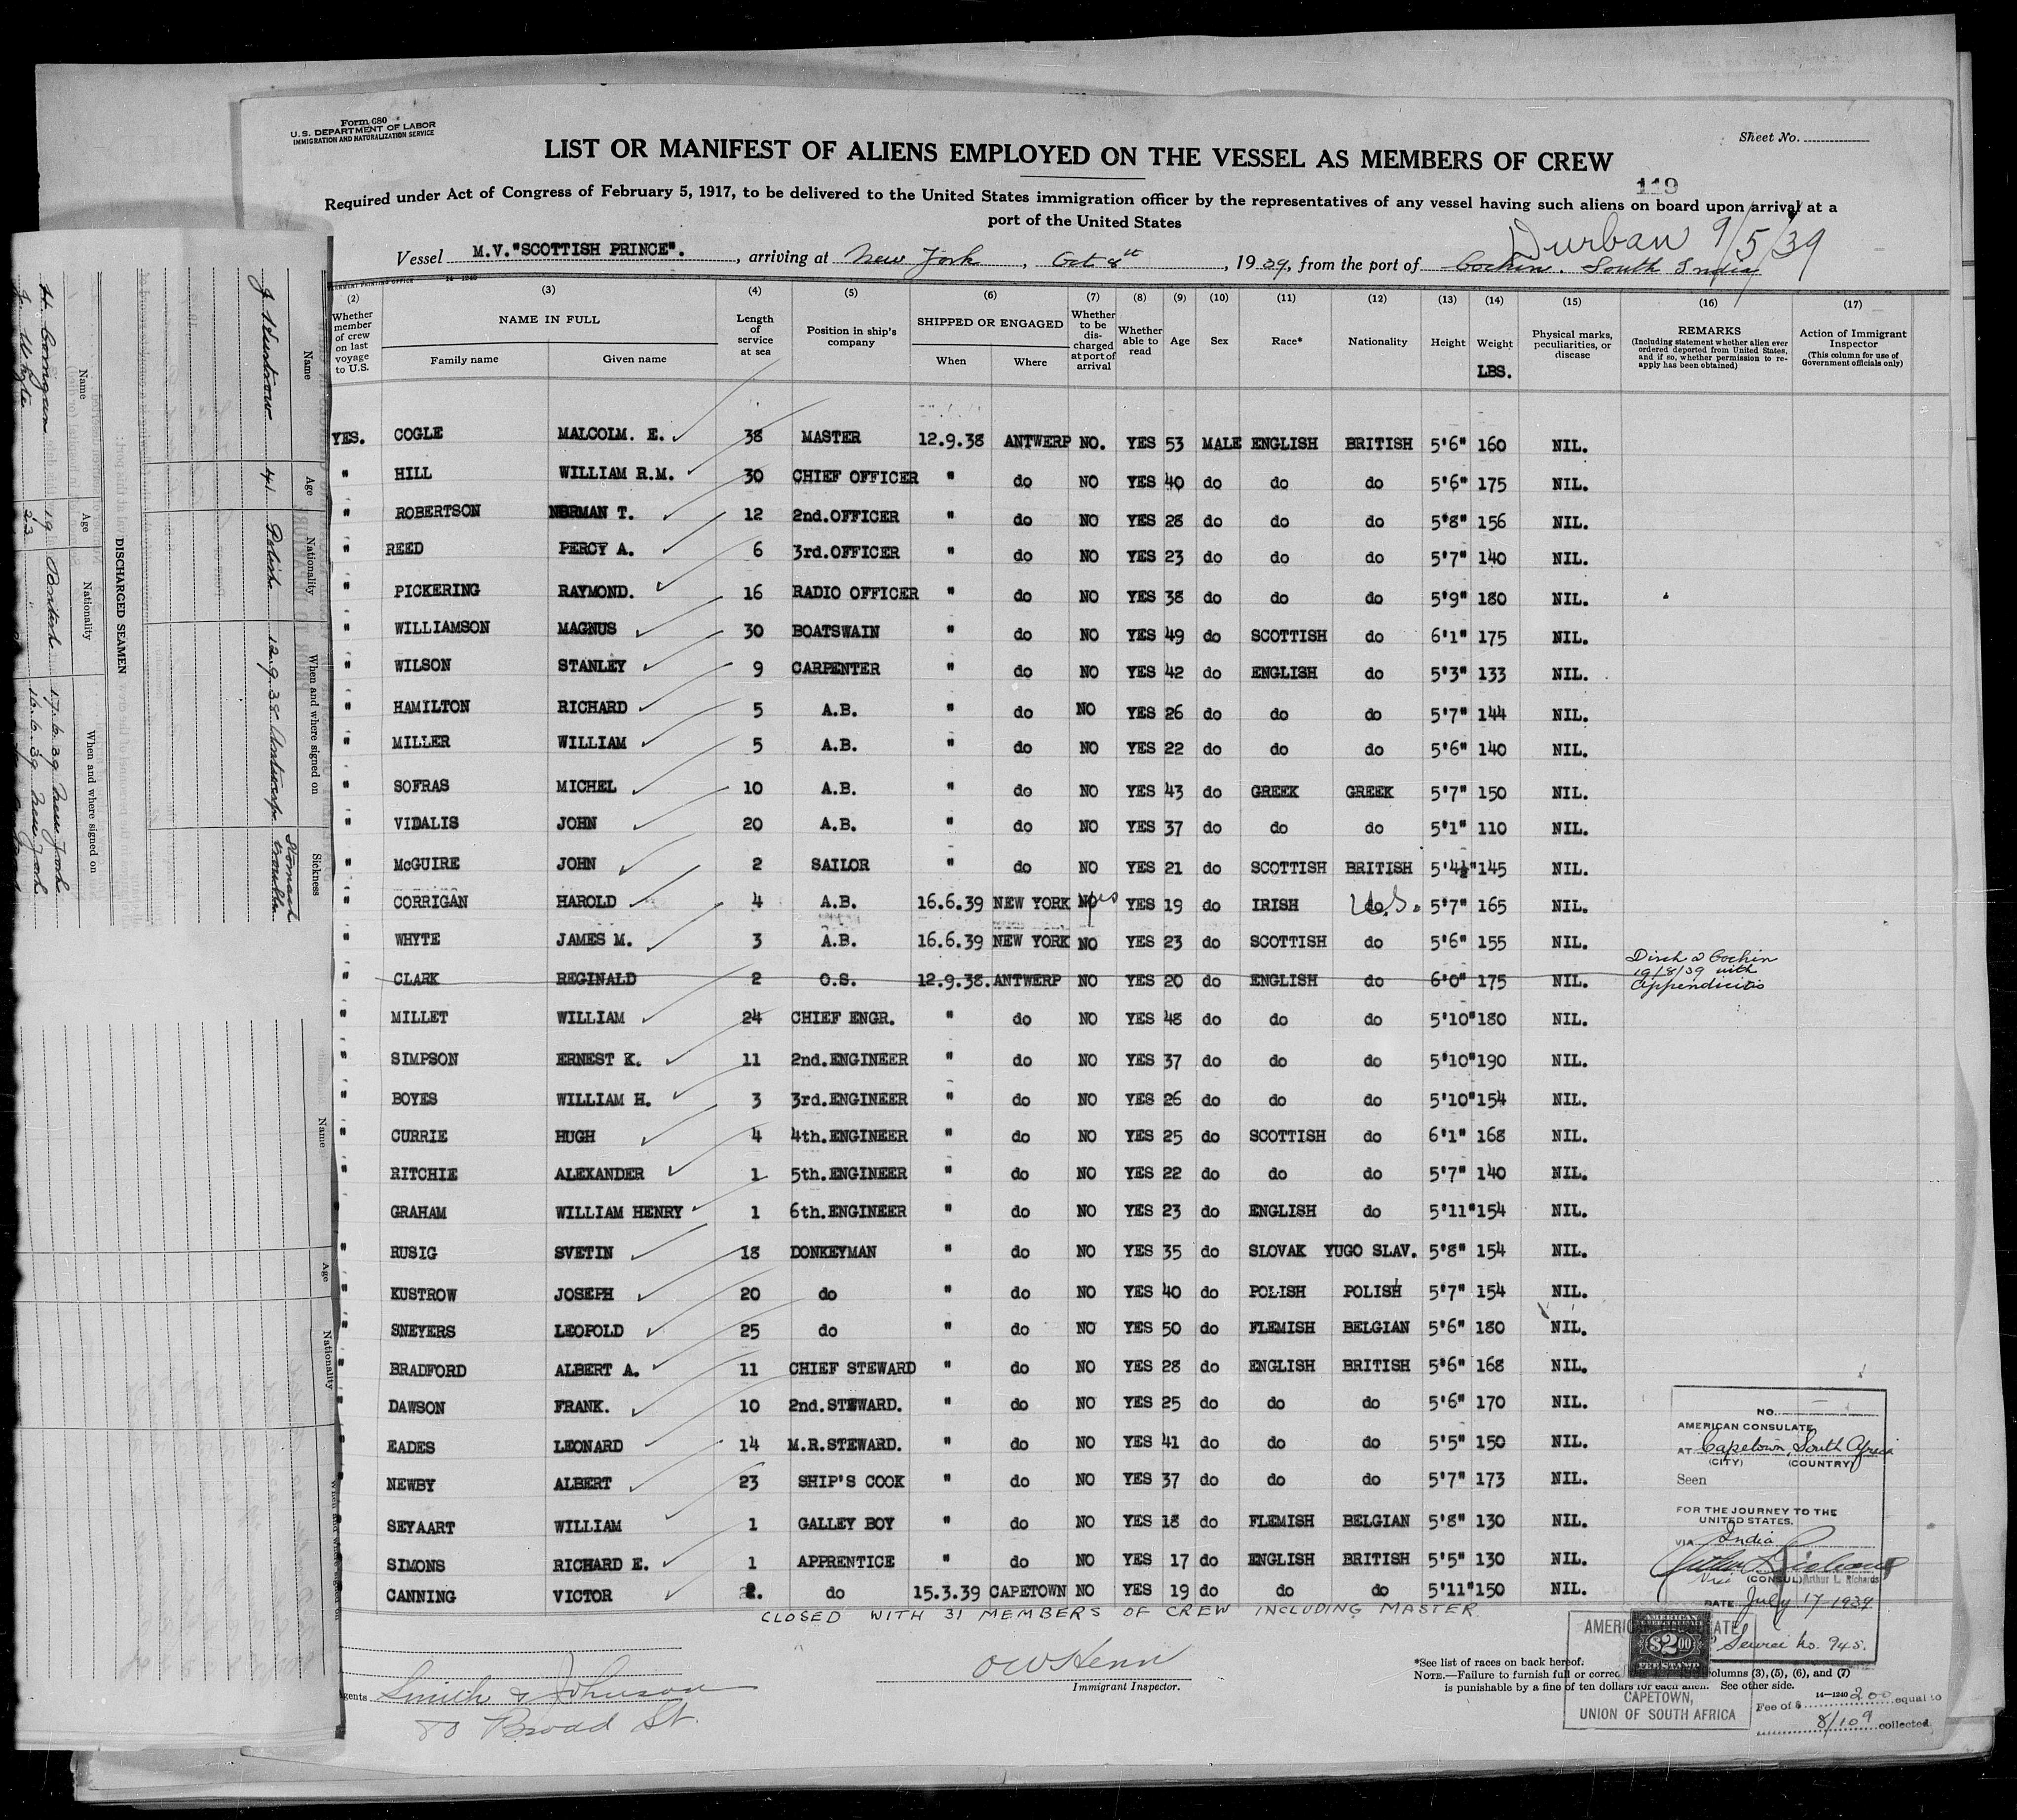 Form 680
U.S. DEPARTMENT OF LABOR
IMMIGRATION AND NATURALIZATION SERVICE
Sheet No.
LIST OR MANIFEST OF ALIENS EMPLOYED ON THE VESSEL AS MEMBERS OF CREW
119
Required under Act of Congress of February 5, 1917, to be delivered to the United States immigration officer by the representatives of any vessel having such aliens on board upon arrival at a
port of the United States
Durban 9/5/39
Vessel M.V."SCOTTISH PRINCE". , arriving at New York , Oct 8th , 1939, from the port of Cochin. South India
14—1240
(2) (3) (4) (5) (6) (7) (8) (9) (10) (11) (12) (13) (14) (15) (16) (17)
Whether member of crew on last voyage to U.S.
NAME IN FULL
Family name Given name
Length of service at sea
Position in ship's company
SHIPPED OR ENGAGED
When Where
Whether to be discharged at port of arrival
Whether able to read
Age
Sex
Race*
Nationality
Height
Weight
LBS.
Physical marks, peculiarities, or disease
REMARKS
(Including statement whether alien ever ordered deported from United States, and if so, whether permission to reapply has been obtained)
Action of Immigrant Inspector
(This column for use of Government officials only)
YES. COGLE MALCOLM. E. 38 MASTER 12.9.38 ANTWERP NO. YES 53 MALE ENGLISH BRITISH 5'6" 160 NIL.
" HILL WILLIAM R.M. 30 CHIEF OFFICER " do NO YES 40 do do do 5'6" 175 NIL.
" ROBERTSON NORMAN T. 12 2nd.OFFICER " do NO YES 28 do do do 5'8" 156 NIL.
" REED PERCY A. 6 3rd.OFFICER " do NO YES 23 do do do 5'7" 140 NIL.
" PICKERING RAYMOND. 16 RADIO OFFICER " do NO YES 38 do do do 5'9" 180 NIL.
" WILLIAMSON MAGNUS 30 BOATSWAIN " do NO YES 49 do SCOTTISH do 6'1" 175 NIL.
" WILSON STANLEY 9 CARPENTER " do NO YES 42 do ENGLISH do 5'3" 133 NIL.
" HAMILTON RICHARD 5 A.B. " do NO YES 26 do do do 5'7" 144 NIL.
" MILLER WILLIAM 5 A.B. " do NO YES 22 do do do 5'6" 140 NIL.
" SOFRAS MICHEL 10 A.B. " do NO YES 43 do GREEK GREEK 5'7" 150 NIL.
" VIDALIS JOHN 20 A.B. " do NO YES 37 do do do 5'1" 110 NIL.
" McGUIRE JOHN 2 SAILOR " do NO YES 21 do SCOTTISH BRITISH 5'4½" 145 NIL.
" CORRIGAN HAROLD 4 A.B. 16.6.39 NEW YORK yes YES 19 do IRISH U.S. 5'7" 165 NIL.
" WHYTE JAMES M. 3 A.B. 16.6.39 NEW YORK NO YES 23 do SCOTTISH do 5'6" 155 NIL.
" CLARK REGINALD 2 O.S. 12.9.38. ANTWERP NO YES 20 do ENGLISH do 6'0" 175 NIL. Disch @ Cochin 19/8/39 with Appendicitis
" MILLET WILLIAM 24 CHIEF ENGR. " do NO YES 48 do do do 5'10" 180 NIL.
" SIMPSON ERNEST K. 11 2nd.ENGINEER " do NO YES 37 do do do 5'10" 190 NIL.
" BOYES WILLIAM H. 3 3rd.ENGINEER " do NO YES 26 do do do 5'10" 154 NIL.
" CURRIE HUGH 4 4th.ENGINEER " do NO YES 25 do SCOTTISH do 6'1" 168 NIL.
" RITCHIE ALEXANDER 1 5th.ENGINEER " do NO YES 22 do do do 5'7" 140 NIL.
" GRAHAM WILLIAM HENRY 1 6th.ENGINEER " do NO YES 23 do ENGLISH do 5'11" 154 NIL.
" RUSIG SVETIN 18 DONKEYMAN " do NO YES 35 do SLOVAK YUGO SLAV. 5'8" 154 NIL.
" KUSTROW JOSEPH 20 do " do NO YES 40 do POLISH POLISH 5'7" 154 NIL.
" SNEYERS LEOPOLD 25 do " do NO YES 50 do FLEMISH BELGIAN 5'6" 180 NIL.
" BRADFORD ALBERT A. 11 CHIEF STEWARD " do NO YES 28 do ENGLISH BRITISH 5'6" 168 NIL.
" DAWSON FRANK. 10 2nd.STEWARD. " do NO YES 25 do do do 5'6" 170 NIL.
" EADES LEONARD 14 M.R.STEWARD. " do NO YES 41 do do do 5'5" 150 NIL.
" NEWBY ALBERT 23 SHIP'S COOK " do NO YES 37 do do do 5'7" 173 NIL.
" SEYAART WILLIAM 1 GALLEY BOY " do NO YES 18 do FLEMISH BELGIAN 5'8" 130 NIL.
" SIMONS RICHARD E. 1 APPRENTICE " do NO YES 17 do ENGLISH BRITISH 5'5" 130 NIL.
CANNING VICTOR 2. do 15.3.39 CAPETOWN NO YES 19 do do do 5'11" 150 NIL.
CLOSED WITH 31 MEMBERS OF CREW INCLUDING MASTER
NO.
AMERICAN CONSULATE
AT Capetown, South Africa
(CITY) (COUNTRY)
Seen
FOR THE JOURNEY TO THE
UNITED STATES.
VIA India
Vice (CONSUL) Arthur L. Richards
DATE July 17-1939
Service No. 945.
AMERICAN CONSULATE
AMERICAN
$2.00
FEE STAMP
CAPETOWN,
UNION OF SOUTH AFRICA
Agents Smith & Johnson
80 Broad St.
Immigrant Inspector.
*See list of races on back hereof.
NOTE.—Failure to furnish full or correct columns (3), (5), (6), and (7)
is punishable by a fine of ten dollars for each alien. See other side.
14—1240
Fee of $ 2.00 equal to
8/10 9 collected
DISCHARGED SEAMEN
Name Age Nationality When and where signed on
H. Corrigan 19 British 17.6.39 New York
J. Whyte 23 " 16.6.39 New York
Name Age Nationality When and where signed on Sickness
J Kustrow 41 Polish 12.9.38 Antwerp Stomach trouble
Name Age Nationality When and where signed on